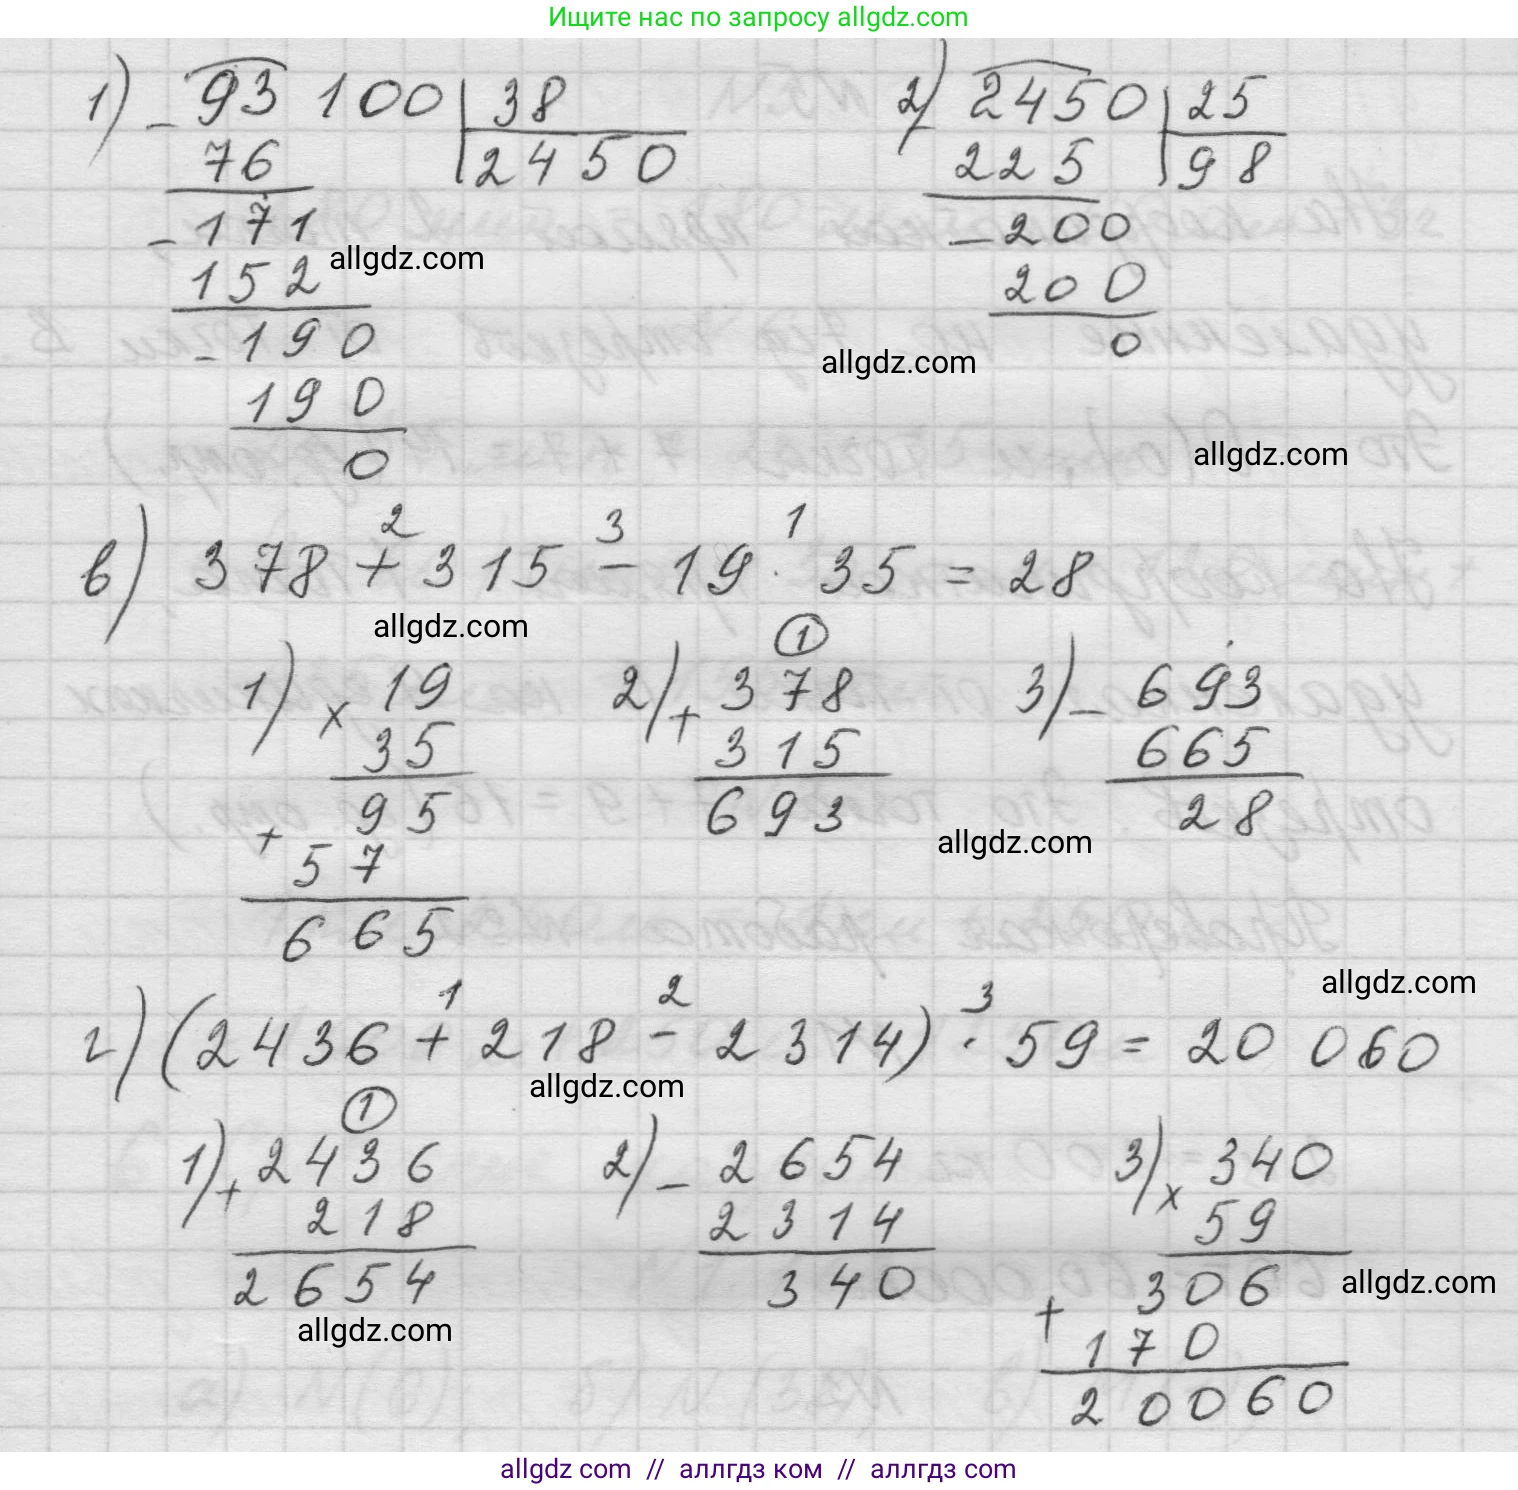 Ищите нас по запросу allgdz.com
1) - 93 100 | 38
76 | 2450
- 171
152
- 190
190
0
2) - 2450 | 25
225 | 98
- 200
200
0
allgdz.com
allgdz.com
allgdz.com
2 3 1
в) 378 + 315 - 19 · 35 = 28
allgdz.com
1) × 19
35
95
+ 57
665
1
2) + 378
315
693
3) - 693
665
28
allgdz.com
allgdz.com
1 2 3
г) (2436 + 218 - 2314) · 59 = 20 060
allgdz.com
1
1) + 2436
218
2654
allgdz.com
2) - 2654
2314
340
3) × 340
59
306
+ 170
20060
allgdz.com
allgdz com // аллгдз ком // аллгдз com